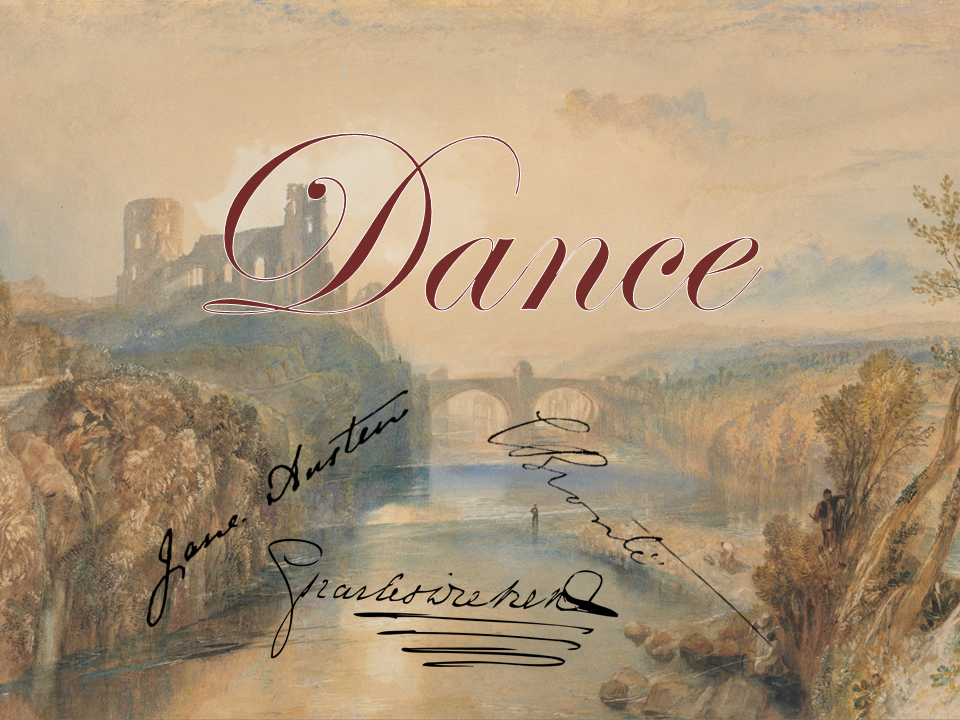 Dance
Jane Austen
CBrontë
Charles Dickens